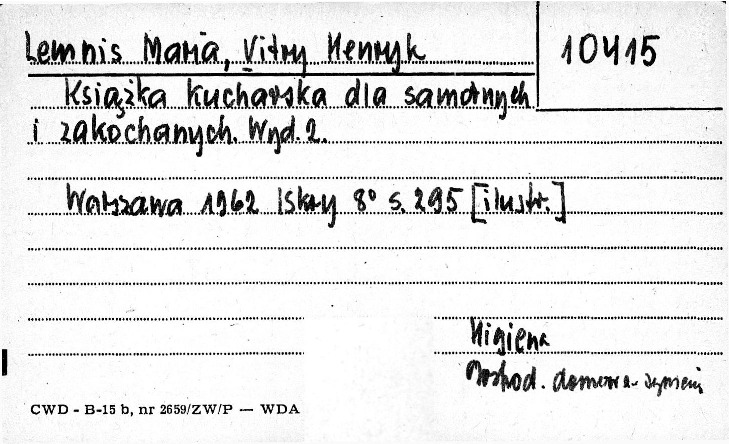 Lemnis Maria, Vitry Henryk
10415
Książka kucharska dla samotnych
i zakochanych. Wyd. 2.
Warszawa 1962 Iskry 8° s. 295 [ilustr.]
Higiena
domowe
CWD - B-15 b, nr 2659/ZW/P — WDA